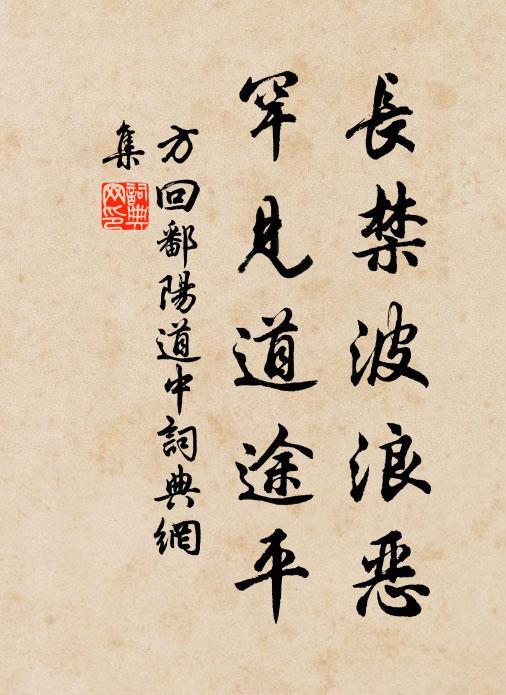 長禁波浪恶
罕見道途平
方回鄱陽道中詞典網
集
詞典
网印